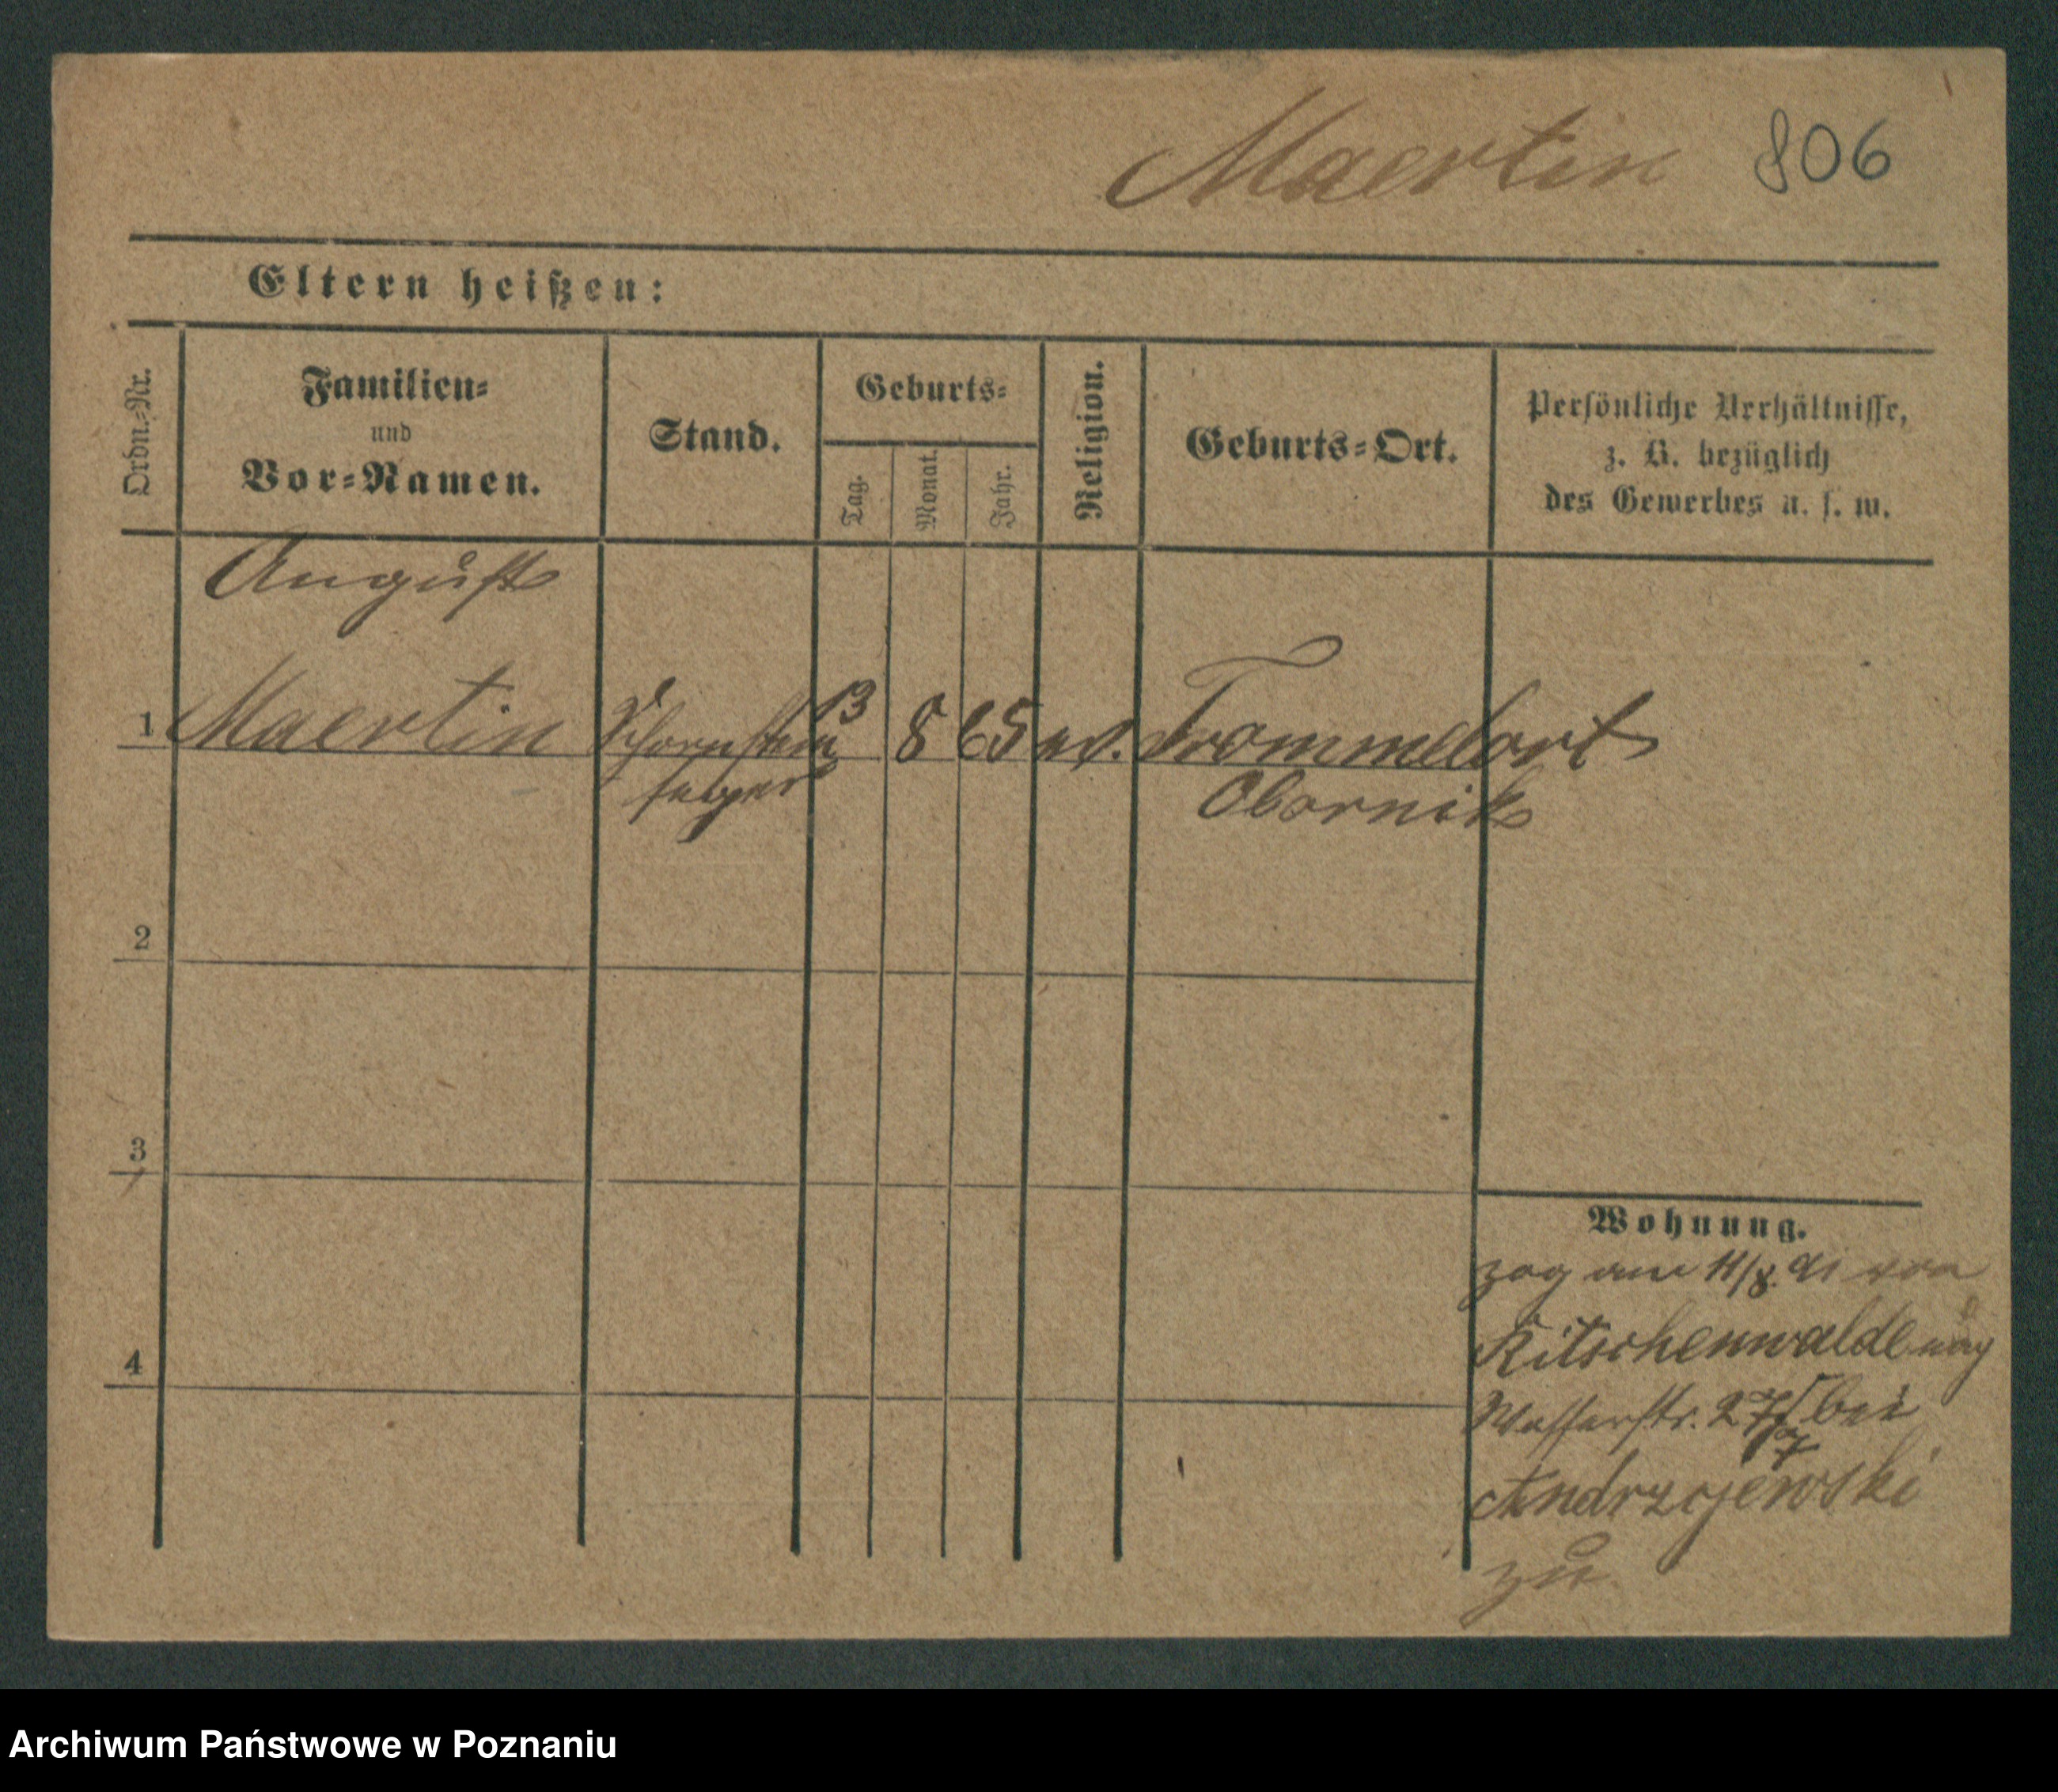 Maertin 806
Eltern heißen:
Ordn.=Nr.
Familien=
und
Vor=Namen.
Stand.
Geburts=
Tag.
Monat.
Jahr.
Religion.
Geburts=Ort.
Persönliche Verhältnisse,
z. B. bezüglich
des Gewerbes u. s. w.
August
1 Maertin Schornstein 13 8 65 ev. Trommelort
feger Obornik
2
3
4
Wohnung.
zog am 11/8. 91 von
Ritschenwalde nach
Wasserstr. 27 bei
Andrzejewski
zu
Archiwum Państwowe w Poznaniu